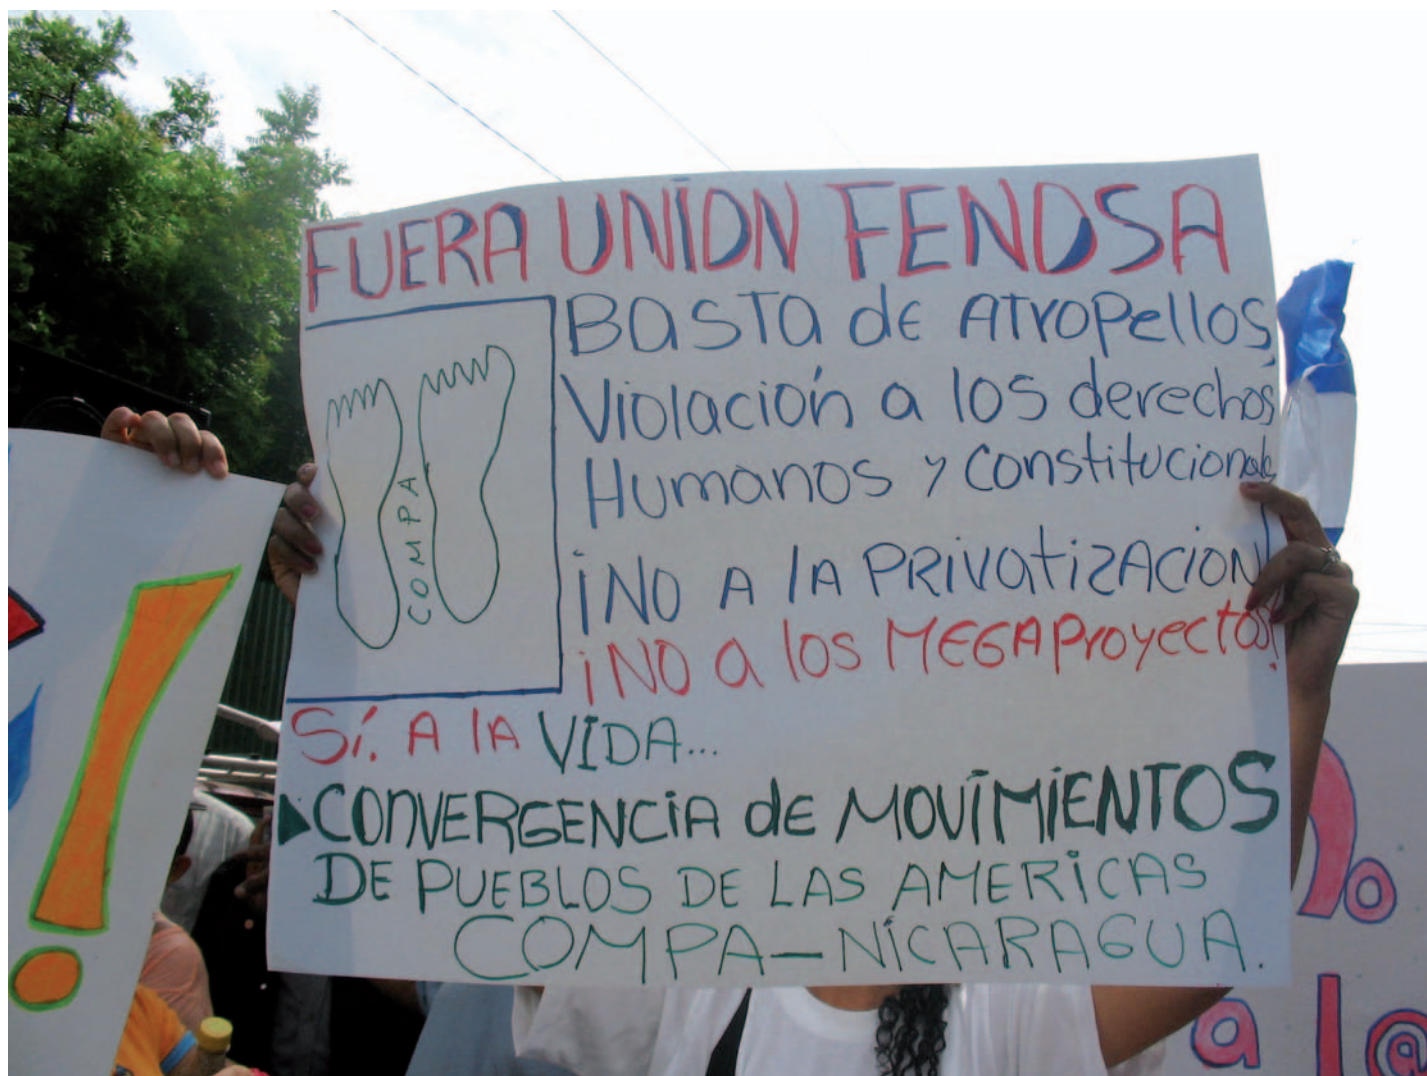 FUERA UNION FENOSA
BASTA dE ATROPELLOS,
Violación a los derechos
Humanos y Constitucionales
¡NO A lA PRIVATIZACION!
¡NO a los MEGAProyectos!
COMPA
Sí. A lA VIDA...
CONVERGENCIA dE MOVIMIENTOS
DE PUEBLOS DE LAS AMERICAS
COMPA-NICARAGUA.
!
a l@